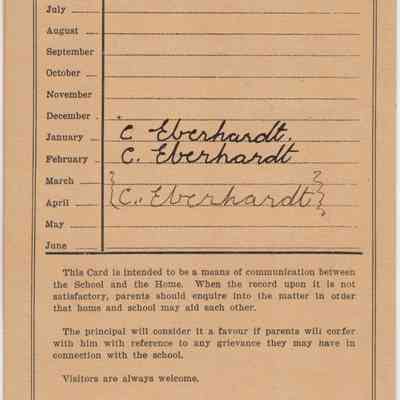 July
August
September
October
November
December
January C. Eberhardt.
February C. Eberhardt
March
April {C. Eberhardt}
May
June
This Card is intended to be a means of communication between
the School and the Home. When the record upon it is not
satisfactory, parents should enquire into the matter in order
that home and school may aid each other.
The principal will consider it a favour if parents will confer
with him with reference to any grievance they may have in
connection with the school.
Visitors are always welcome.